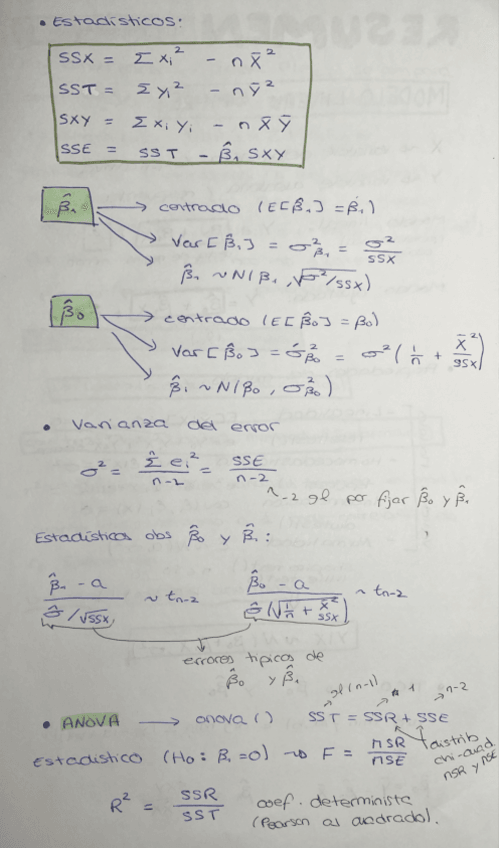 • Estadísticos:
SSX = Σ xᵢ² - n X̄²
SST = Σ yᵢ² - n Ȳ²
SXY = Σ xᵢ yᵢ - n X̄ Ȳ
SSE = SST - β̂₁ SXY
β̂₁ → centrado (E[β̂₁] = β₁)
Var[β̂₁] = σ²β̂₁ = σ²/SSX
β̂₁ ~ N(β₁, √σ²/SSX)
β̂₀ → centrado (E[β̂₀] = β₀)
Var[β̂₀] = σ²β̂₀ = σ²(1/n + X̄²/SSX)
β̂₁ ~ N(β₀, σ²β̂₀)
• Varianza del error
σ² = Σ eᵢ²/n-2 = SSE/n-2
n-2 gl por fijar β̂₀ y β̂₁
Estadísticos obs β̂₀ y β̂₁:
β̂₁ - a / σ̂/√SSX ~ tn-2   β̂₀ - a / σ̂(√1/n + X̄²/SSX) ~ tn-2
errores típicos de
β̂₀ y β̂₁
gl (n-1) 1 n-2
• ANOVA → anova() SST = SSR + SSE
Estadístico (H₀: β₁=0) → F = MSR/MSE
distrib
chi-cuad
MSR y MSE
R² = SSR/SST coef. determinista
(Pearson al cuadrado).